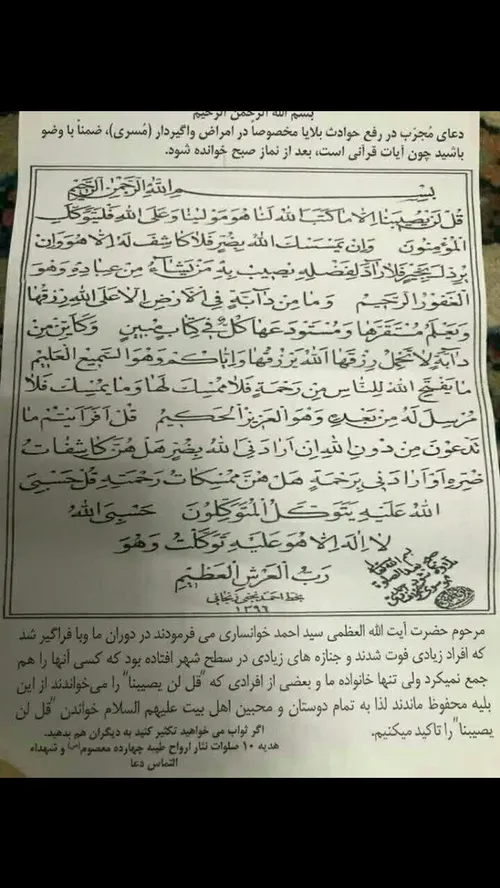 بسم الله الرحمن الرحیم
دعای مُجرّب در رفع حوادث بلایا مخصوصاً در امراض واگیردار (مُسری)، ضمناً با وضو
باشید چون آیات قرآنی است، بعد از نماز صبح خوانده شود.
بِسْمِ اللهِ الرَّحْمٰنِ الرَّحِيْمِ
قُل لَنْ يُصيبَنا اِلّا ما كَتَبَ اللهُ لَنا هُوَ مَوْلينا وَ عَلَى اللهِ فَليَتَوَكَّلِ
المُؤْمِنُونَ وَاِن يَمْسَسْكَ اللهُ بِضُرٍّ فَلا كاشِفَ لَهُ اِلّا هُوَ وَاِن
يُرِدْكَ بِخَيْرٍ فَلا رادَّ لِفَضْلِهِ نُصيبُ بِهِ مَنْ يَشاءُ مِنْ عِبادِهِ وَهُوَ
الغَفُورُ الرَّحيم وَما مِنْ دابَّةٍ فِى الْاَرْضِ اِلّا عَلَى اللهِ رِزْقُها
وَيَعْلَمُ مُسْتَقَرَّها وَمُسْتَوْدَعَها كُلٌّ فى كِتابٍ مُبينٍ وَكَاَيِّنْ مِنْ
دابَّةٍ لا تَحْمِلُ رِزْقَهَا اللهُ يَرْزُقُها وَاِيّاكُمْ وَهُوَ السَّميعُ العَليمُ
ما يَفْتَحِ اللهُ لِلنّاسِ مِنْ رَحْمَةٍ فَلا مُمْسِكَ لَها وَما يُمْسِكْ فَلا
مُرْسِلَ لَهُ مِنْ بَعْدِهِ وَهُوَ العَزيزُ الحَكيمُ قُلْ اَفَرَاَيْتُمْ ما
تَدْعُونَ مِنْ دُونِ اللهِ اِنْ اَرادَنِىَ اللهُ بِضُرٍّ هَلْ هُنَّ كاشِفاتُ
ضُرِّهِ اَوْ اَرادَنى بِرَحْمَةٍ هَلْ هُنَّ مُمْسِكاتُ رَحْمَتِهِ قُلْ حَسْبِىَ
اللهُ عَلَيْهِ يَتَوَكَّلُ الْمُتَوَكِّلُونَ حَسْبِىَ اللهُ
لا اِلهَ اِلّا هُوَ عَلَيْهِ تَوَكَّلْتُ وَهُوَ
رَبُّ العَرْشِ العَظيمِ
بخط احمد نجفی زنجانی
۱۳۹۶
مرحوم حضرت آیت الله العظمی سید احمد خوانساری می فرمودند در دوران ما وبا فراگیر شد
که افراد زیادی فوت شدند و جنازه های زیادی در سطح شهر افتاده بود که کسی آنها را هم
جمع نمیکرد ولی تنها خانواده ما و بعضی از افرادی که "قل لن یصیبنا" را می‌خواندند از این
بلیه محفوظ ماندند لذا به تمام دوستان و محبین اهل بیت علیهم السلام خواندن "قل لن
یصیبنا" را تاکید میکنیم.
اگر ثواب می خواهید تکثیر کنید به دیگران هم بدهید.
هدیه ۱۰ صلوات نثار ارواح طیبه چهارده معصوم(س) و شهداء
التماس دعا